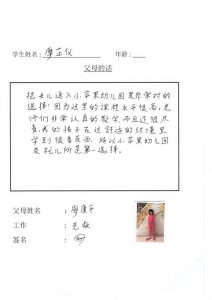 学生姓名：廖芷仪 年龄：
父母的话
把女儿送入小苹果幼儿园是非常对的
选择！因为这里的课程水平很高，老
师们非常认真的教学，而且还很尽
责。我的孩子在这舒适的环境里
学到很多东西，所以小苹果幼儿园
及托儿所是第一选择。
父母姓名 ： 廖康平
工作 ：
签名 ：